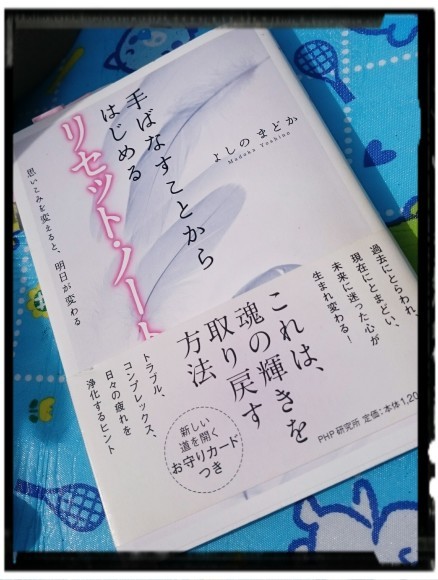 手ばなすことから
はじめる
リセット・ノート
思いこみを変えると、明日が変わる
よしの まどか
Madoka Yoshino
過去にとらわれ、
現在にとまどい、
未来に迷った心が
生まれ変わる!
これは、
魂の輝きを
取り戻す
方法
トラブル、
コンプレックス、
日々の疲れを
浄化するヒント
新しい
道を開く
お守りカード
つき
PHP研究所 定価:本体1,20